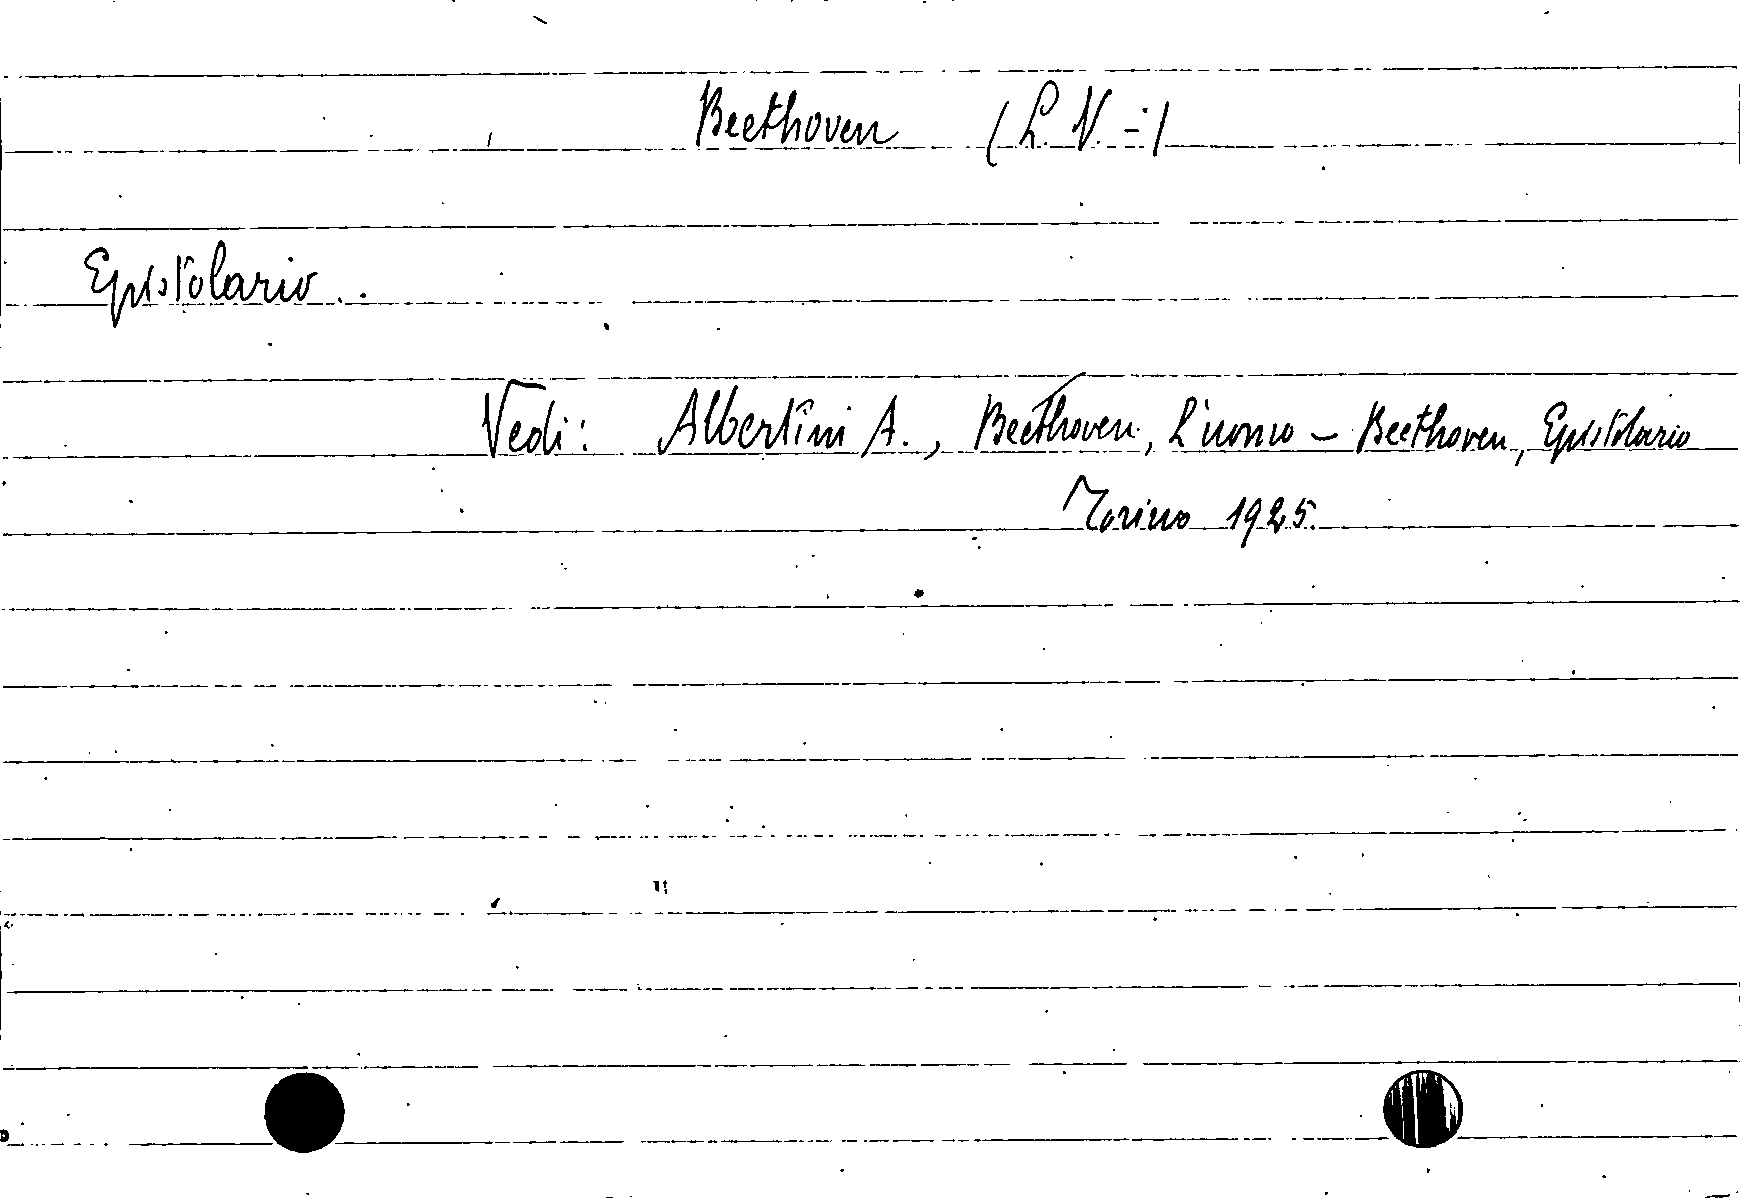 Beethoven (L. V. -)
Epistolario.
Vedi: Albertini A., Beethoven, L'uomo – Beethoven, Epistolario
Torino 1925.